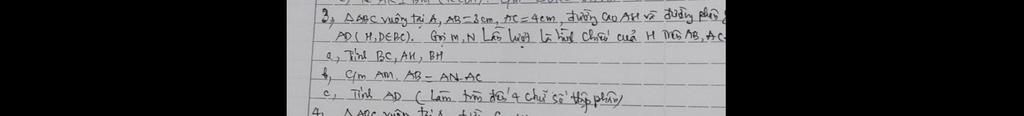 3, ΔABC vuông tại A, AB=3cm, AC=4cm, đường cao AH và đường phân
AD (H,D∈BC). Gọi M,N lần lượt là hình chiếu của H trên AB, AC
a, Tính BC, AH, BH
b, C/m AM. AB = AN.AC
c, Tính AD (làm tròn đến 4 chữ số thập phân)
4, ΔABC vuông tại A